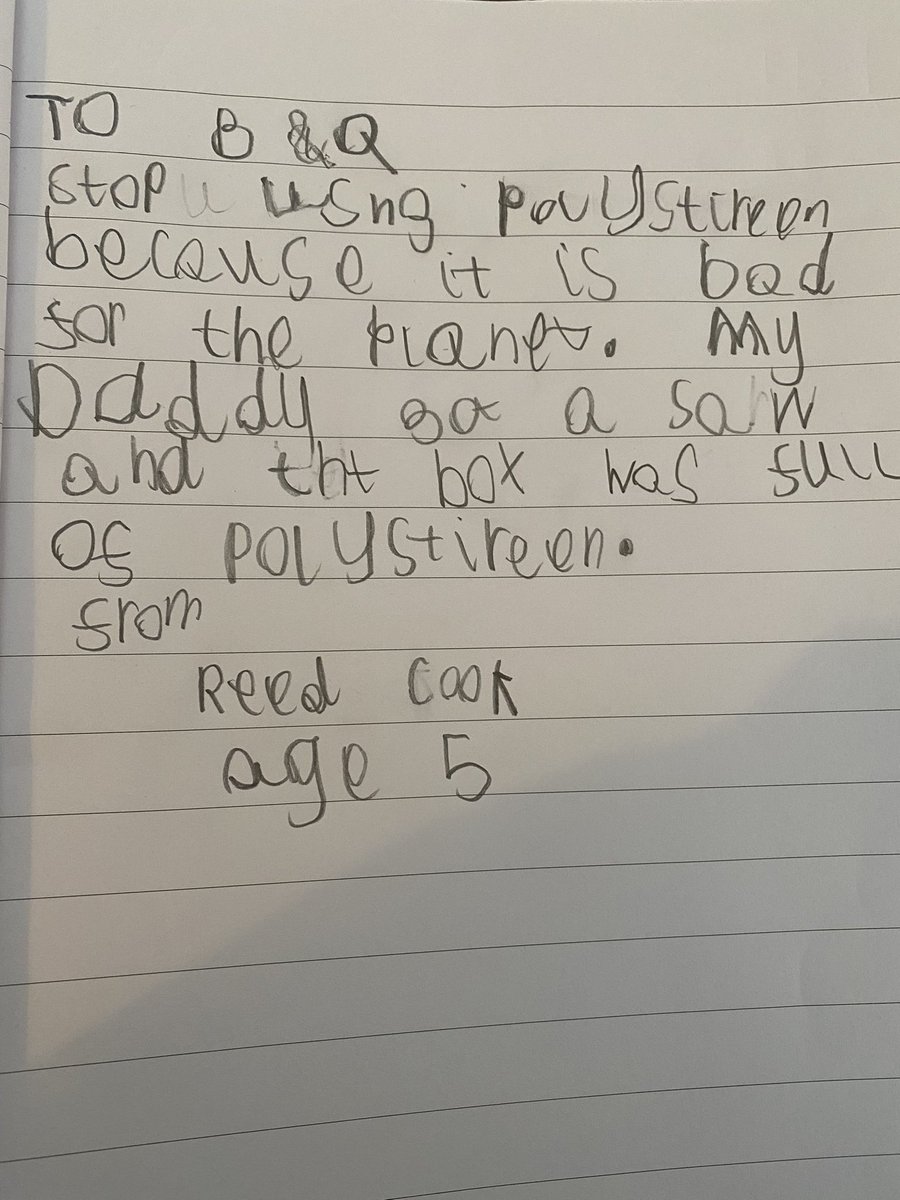 TO B & Q
stop using polystireen
because it is bad
for the planet. My
Daddy got a saw
and tht box was full
of polystireen.
from
Reed Cook
age 5